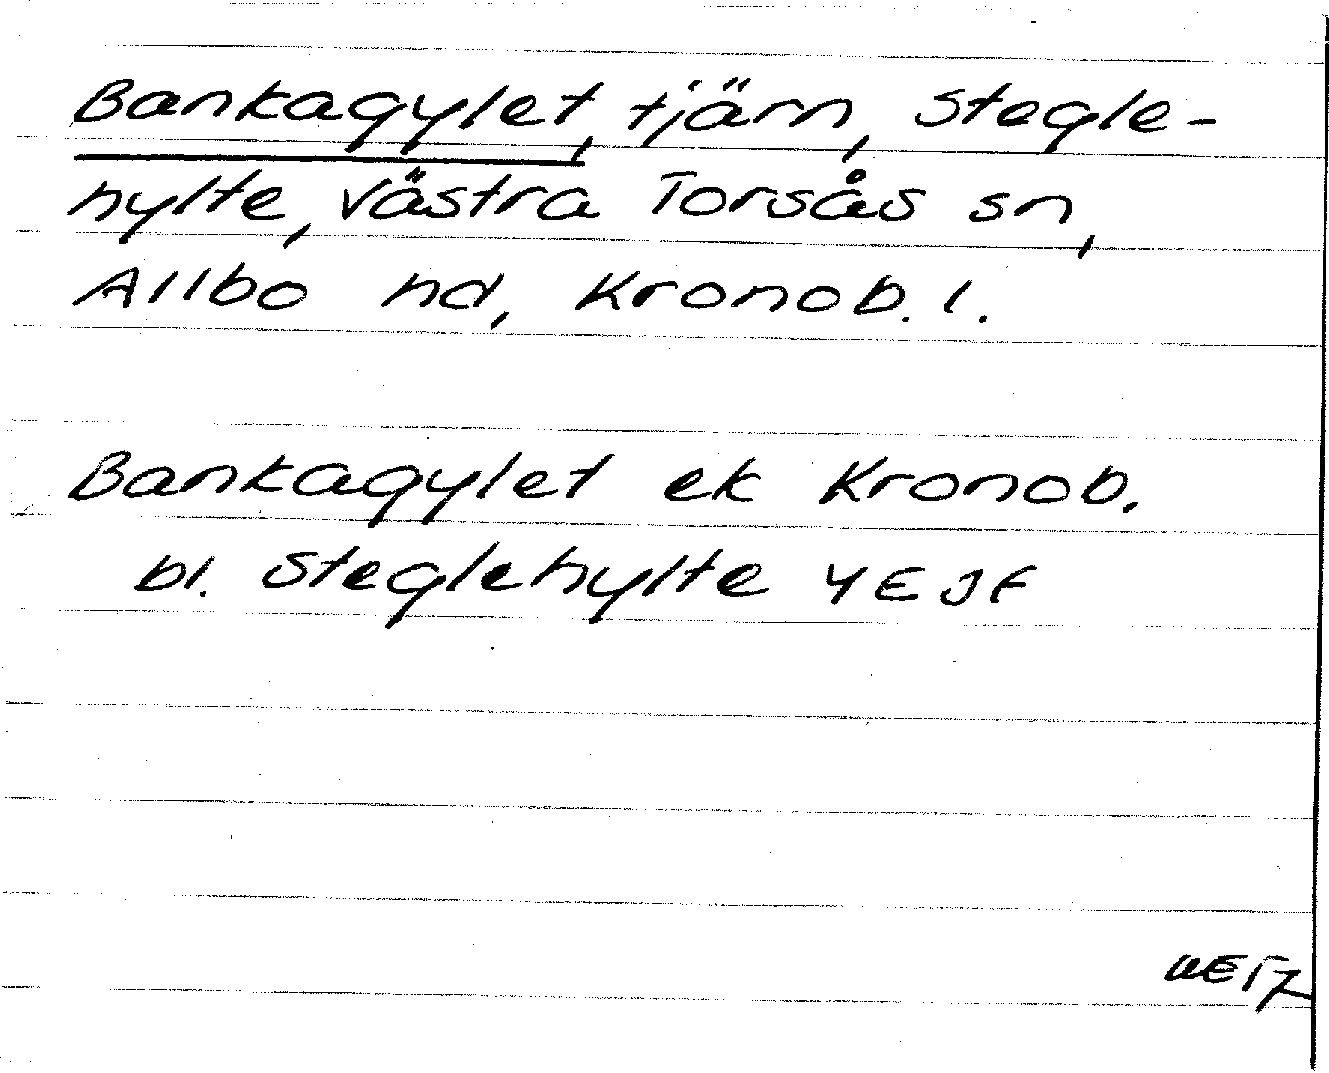 Bankagylet, tjärn, Stegle-
hylte, Västra Torsås sn,
Allbo hd, Kronob. l.
Bankagylet ek Kronob.
bl. Steglehylte 4E JF